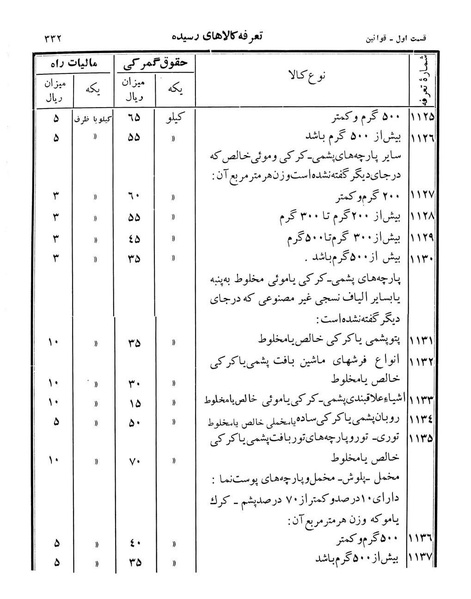 قسمت اول - قوانین تعرفه کالاهای رسیده ۳۳۲
شمارهٔ تعرفه نوع کالا حقوق گمرکی مالیات راه
یکه میزان ریال یکه میزان ریال
۱۱۲۵ ۵۰۰ گرم وکمتر کیلو ۶۵ کیلو با ظرف ۵
۱۱۲۶ بیش از ۵۰۰ گرم باشد » ۵۵ » ۵
سایر پارچه‌های پشمی - کرکی و موئی خالص که
درجای دیگر گفته نشده است وزن هر متر مربع آن:
۱۱۲۷ ۲۰۰ گرم وکمتر » ۶۰ » ۳
۱۱۲۸ بیش از ۲۰۰ گرم تا ۳۰۰ گرم » ۵۵ » ۳
۱۱۲۹ بیش از ۳۰۰ گرم تا ۵۰۰ گرم » ۴۵ » ۳
۱۱۳۰ بیش از ۵۰۰ گرم باشد . » ۳۵ » ۳
پارچه‌های پشمی - کرکی یا موئی مخلوط به پنبه
یا بسایر الیاف نسجی غیر مصنوعی که درجای
دیگر گفته نشده است:
۱۱۳۱ پتو پشمی یا کرکی خالص یا مخلوط » ۳۵ » ۱۰
۱۱۳۲ انواع فرشهای ماشین بافت پشمی یا کرکی
خالص یا مخلوط » ۳۰ » ۱۰
۱۱۳۳ اشیاء علاقبندی پشمی - کرکی یا موئی خالص یا مخلوط » ۱۵ » ۱۰
۱۱۳۴ روبان پشمی یا کرکی ساده یا مخملی خالص یا مخلوط » ۵۰ » ۵
۱۱۳۵ توری - تور و پارچه‌های تور بافت پشمی یا کرکی
خالص یا مخلوط » ۷۰ » ۱۰
مخمل - پلوش - مخمل و پارچه‌های پوست نما :
دارای ۱۰ درصد و کمتر از ۷۰ درصد پشم - کرک
یا مو که وزن هر متر مربع آن:
۱۱۳۶ ۵۰۰ گرم وکمتر » ۴۰ » ۵
۱۱۳۷ بیش از ۵۰۰ گرم باشد » ۳۵ » ۵